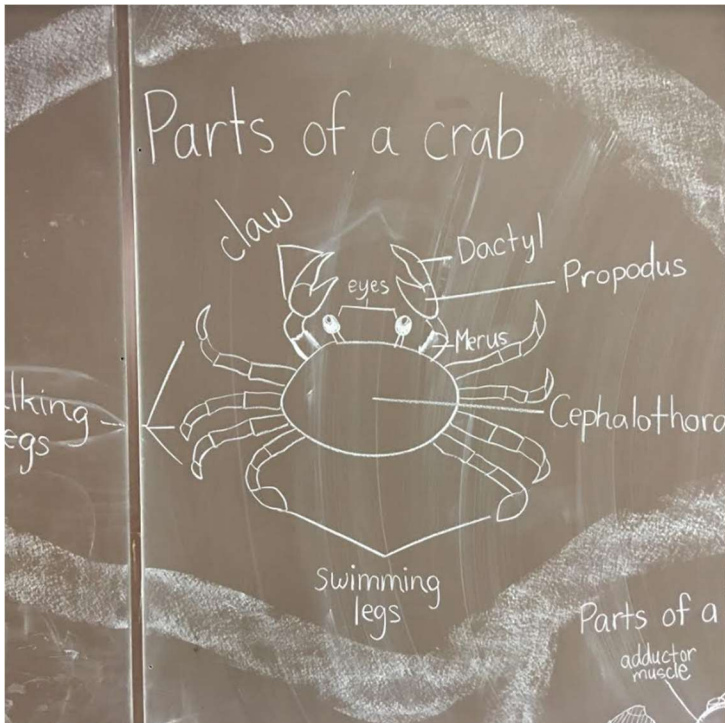 Parts of a crab
claw
Dactyl
eyes
Propodus
Merus
Cephalothora
lking
egs
swimming
legs
Parts of a
adductor
muscle